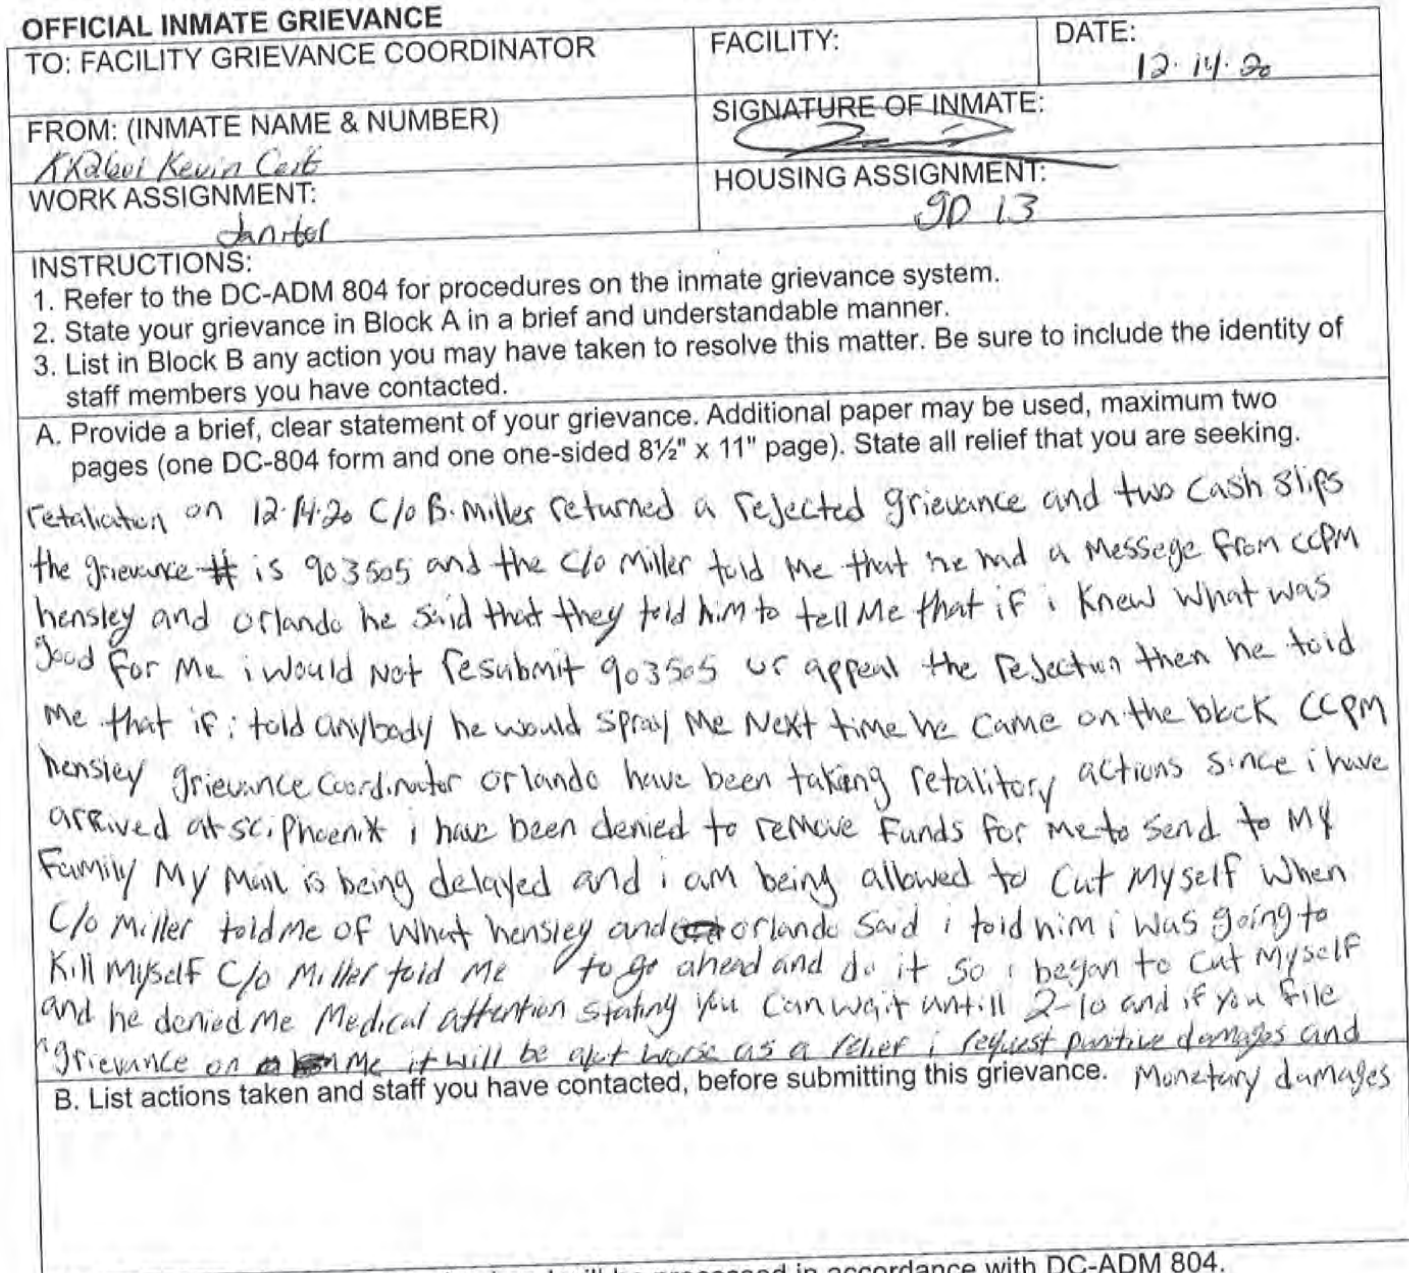 OFFICIAL INMATE GRIEVANCE
TO: FACILITY GRIEVANCE COORDINATOR
FACILITY:
DATE:
12.14.20
FROM: (INMATE NAME & NUMBER)
Kevin
SIGNATURE OF INMATE:
WORK ASSIGNMENT:
Janitor
HOUSING ASSIGNMENT:
gD 13
INSTRUCTIONS:
1. Refer to the DC-ADM 804 for procedures on the inmate grievance system.
2. State your grievance in Block A in a brief and understandable manner.
3. List in Block B any action you may have taken to resolve this matter. Be sure to include the identity of
staff members you have contacted.
A. Provide a brief, clear statement of your grievance. Additional paper may be used, maximum two
pages (one DC-804 form and one one-sided 8½" x 11" page). State all relief that you are seeking.
retaliation on 12.14.20 C/o B. Miller returned a rejected grievance and two cash slips
the grievance # is 903505 and the C/o Miller told me that he had a Messege from CCPM
hensley and orlando he said that they told him to tell Me that if i Knew what was
good for Me i would Not resubmit 903505 or appeal the rejection then he told
me that if i told anybody he would spray Me Next time he came on the block CCPM
hensley grievance coordinator orlando have been taking retalitory actions since i have
arrived at sci phoenix i have been denied to remove funds for me to send to MY
Family My Mail is being delayed and i am being allowed to cut Myself when
C/o Miller told me of what hensley and orlando said i told him i was going to
Kill Myself C/o Miller told Me to go ahead and do it so i began to cut Myself
and he denied me Medical attention stating you can wait untill 2-10 and if you file
grievance on me it will be alot worse as a relief i request punitive damages and
Monetary damages
B. List actions taken and staff you have contacted, before submitting this grievance.
in accordance with DC-ADM 804.